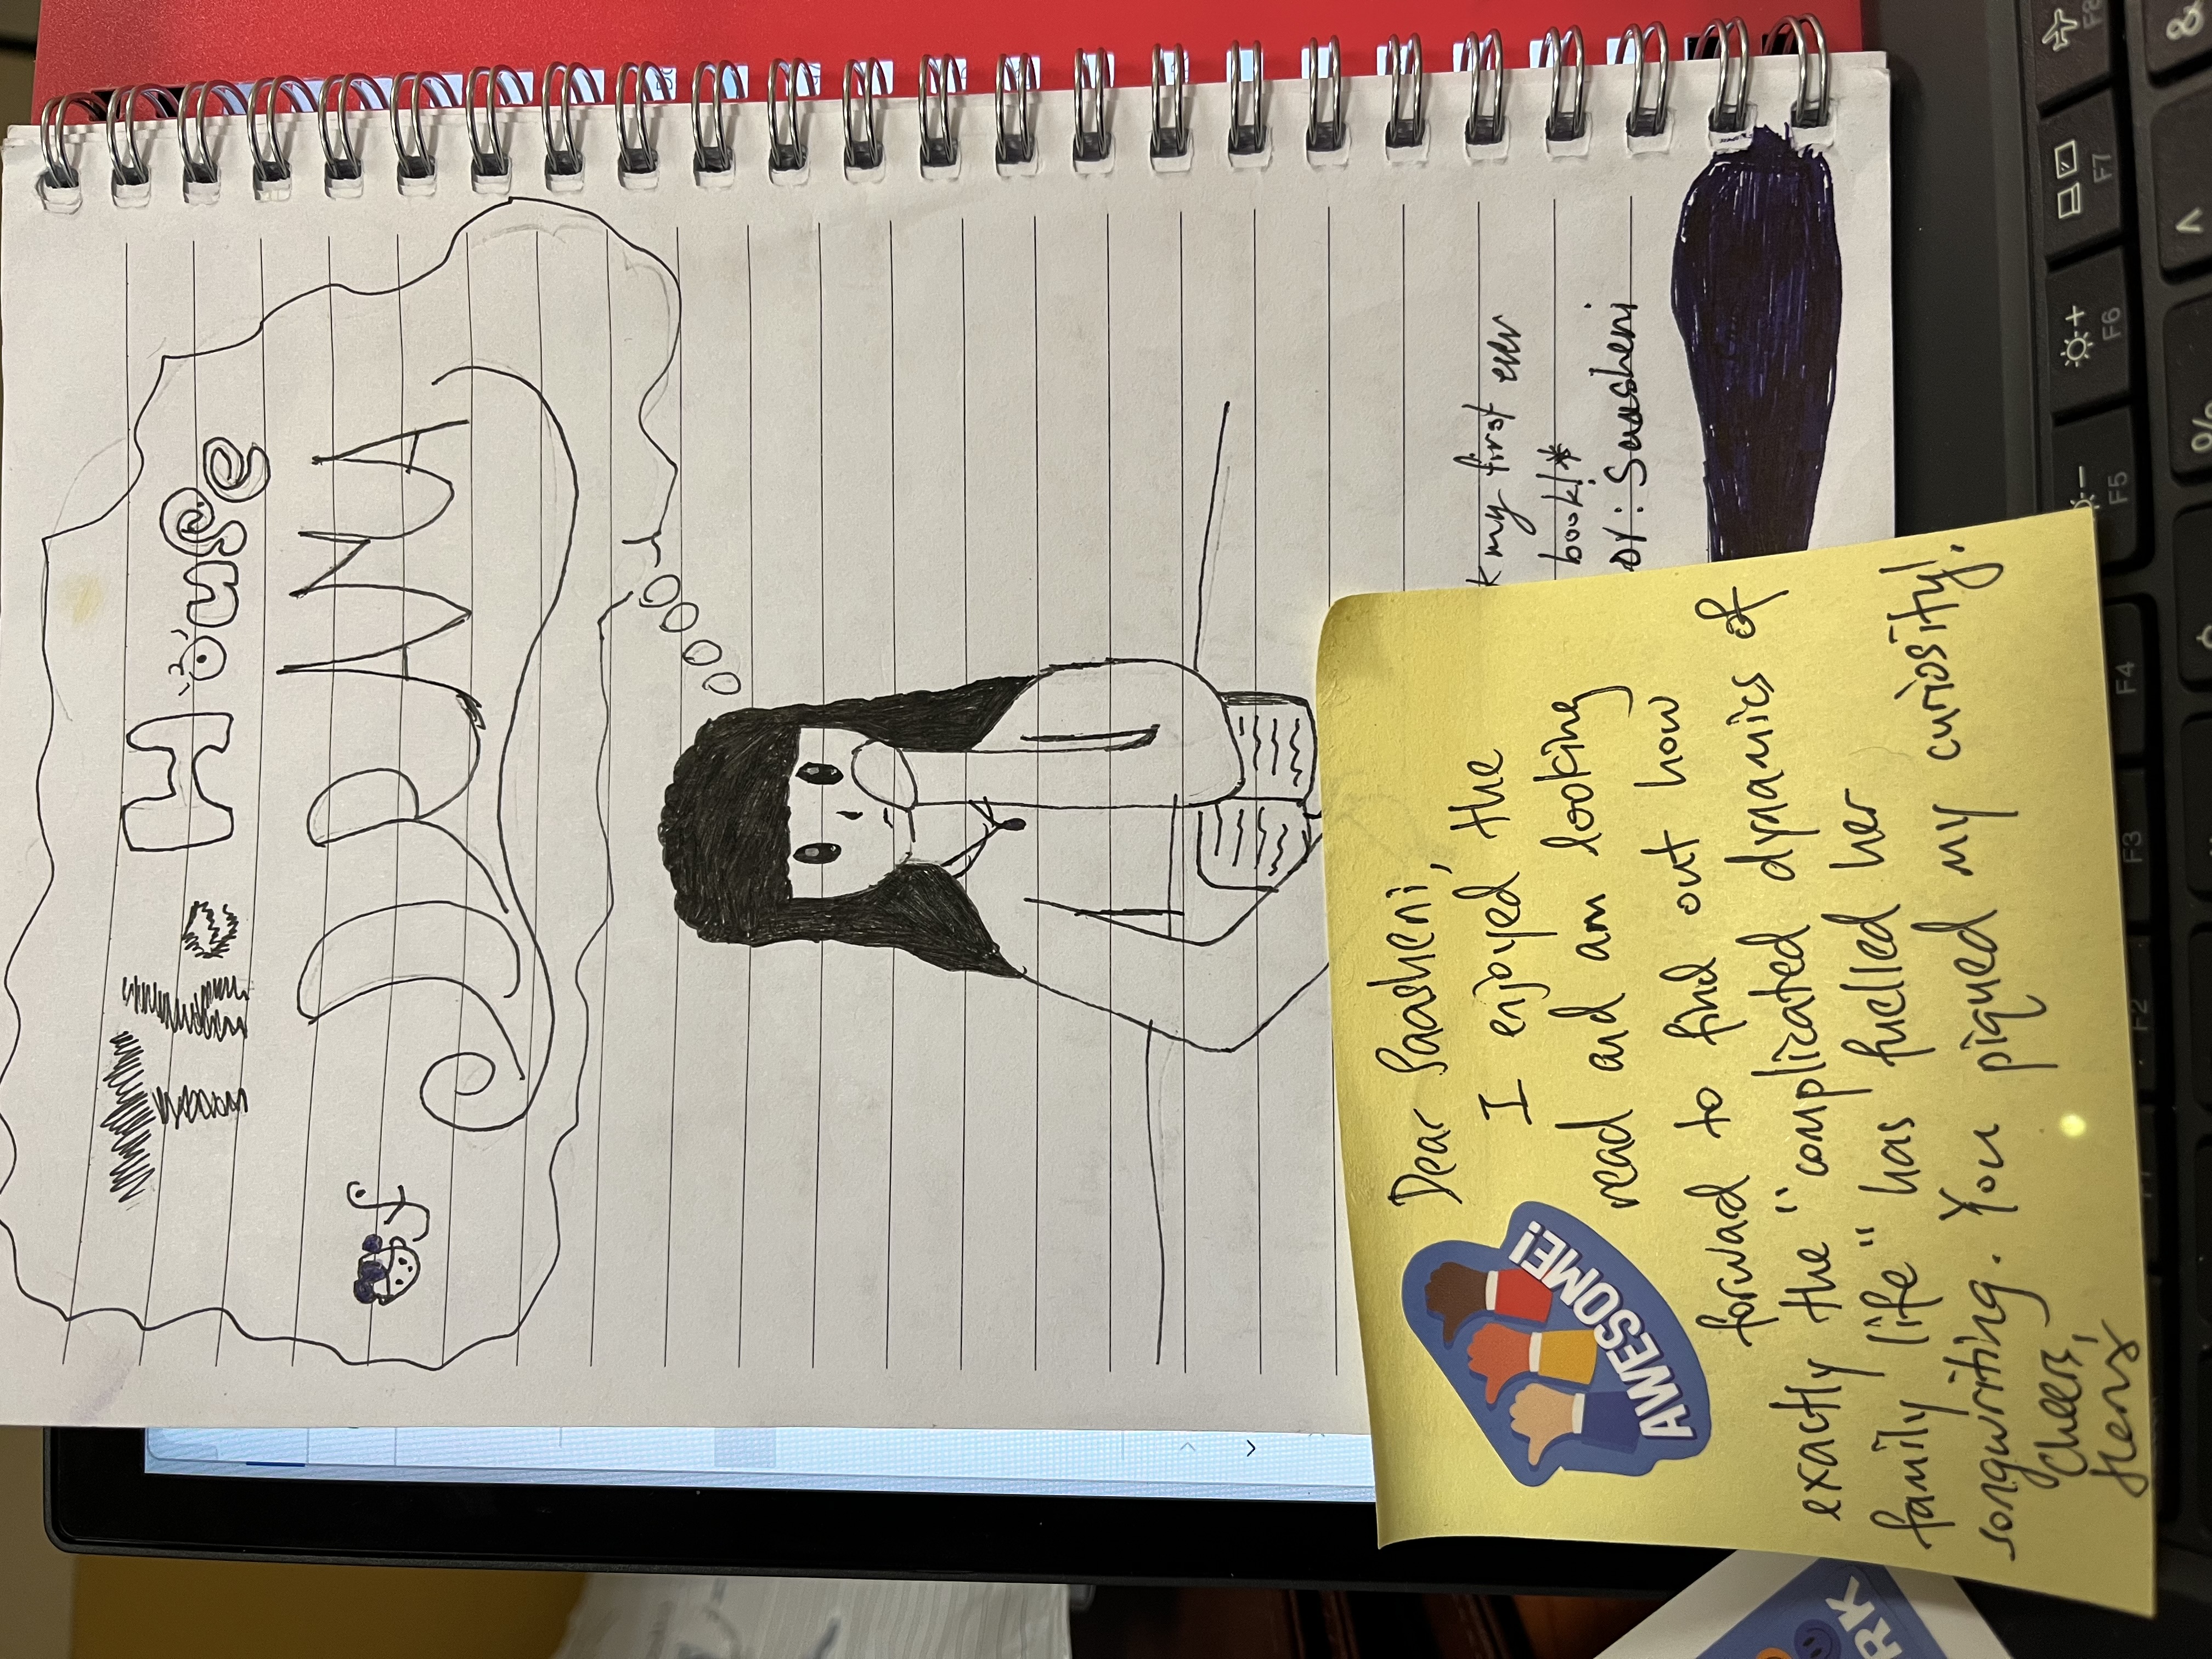 The House
of DRAMA
my first ever
book!*
BY: Saasheni
AWESOME!
Dear Saasheni,
I enjoyed the
read and am looking
forward to find out how
exactly the "complicated dynamics of
family life" has fuelled her
songwriting. You piqued my curiosity!
Cheers,
RK
F8
F7
F6
F5
F4
F3
F2
&
^
%